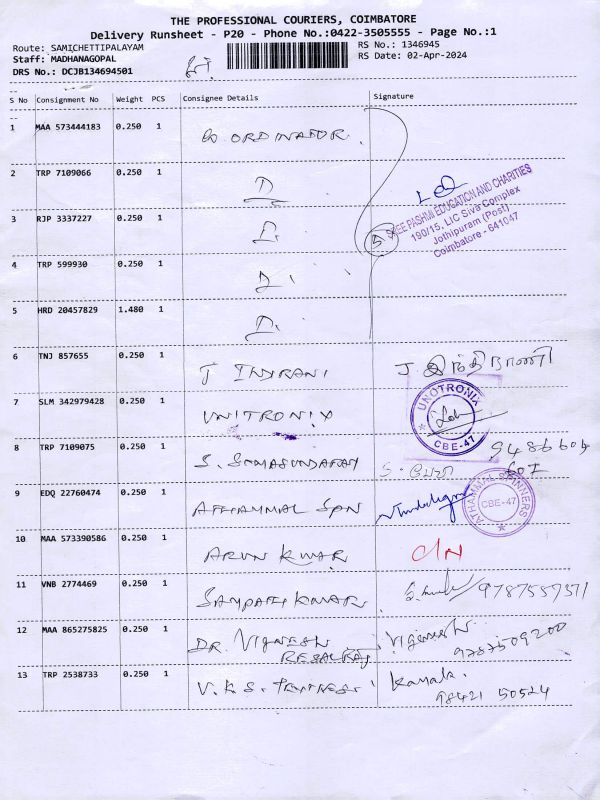 THE PROFESSIONAL COURIERS, COIMBATORE
Delivery Runsheet - P20 - Phone No.:0422-3505555 - Page No.:1
Route: SAMICHETTIPALAYAM RS No.: 1346945
Staff: MADHANAGOPAL RS Date: 02-Apr-2024
DRS No.: DCJB134694501
S No Consignment No Weight PCS Consignee Details Signature
1 MAA 573444183 0.250 1 CO ORDINATOR.
2 TRP 7109066 0.250 1 D
SREE PASHMI EDUCATION AND CHARITIES
190/15, LIC Siva Complex
Jothipuram (Post)
Coimbatore - 641047
3 RJP 3337227 0.250 1 D. 5
4 TRP 599930 0.250 1 D.
5 HRD 20457829 1.480 1 D.
6 TNJ 857655 0.250 1 J INDIRANI J. இந்திராணி
7 SLM 342979428 0.250 1 UNITRONIX UNOTRONIX CBE-47
8 TRP 7109075 0.250 1 S. SOMASUNDARAM
9 EDQ 22760474 0.250 1 ATHAMMAL SPN ATHAMMAL SPINNERS CBE-47
10 MAA 573390586 0.250 1 ARUN KUMAR
11 VNB 2774469 0.250 1 SAMPATH KUMAR 9787557371
12 MAA 865275825 0.250 1 DR. VIGNESH Vignesh
9787509200
13 TRP 2538733 0.250 1 V.K.S. Kamala.
98421 50524